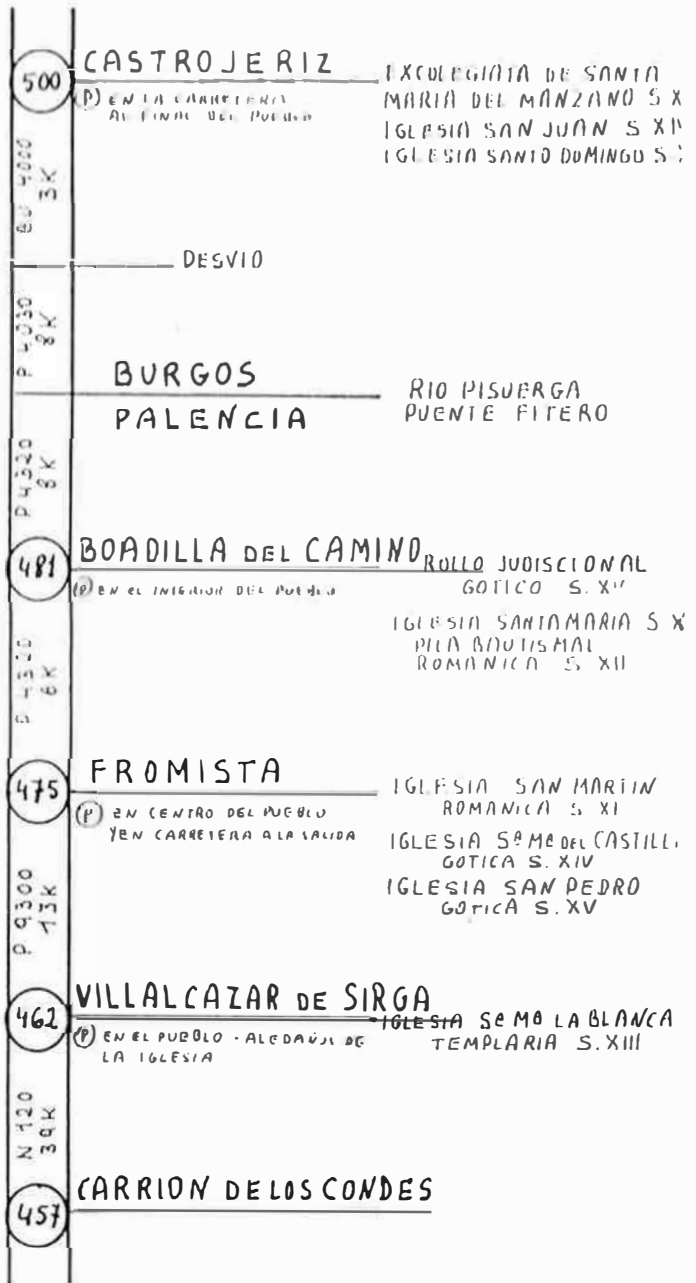 500
CASTROJERIZ
(P) EN LA CARRETERA
AL FINAL DEL PUEBLO
EXCOLEGIATA DE SANTA
MARIA DEL MANZANO S X
IGLESIA SAN JUAN S XIV
IGLESIA SANTO DOMINGO S
BU 4000
3K
DESVIO
P 4030
8K
BURGOS
PALENCIA
RIO PISUERGA
PUENTE FITERO
P 4320
8K
481
BOADILLA DEL CAMINO
(P) EN EL INTERIOR DEL PUEBLO
ROLLO JUDISCIONAL
GOTICO S.
IGLESIA SANTA MARIA S X
PILA BAUTISMAL
ROMANICA S XII
P 4320
6K
475
FROMISTA
(P) EN CENTRO DEL PUEBLO
Y EN CARRETERA A LA SALIDA
IGLESIA SAN MARTIN
ROMANICA S XI
IGLESIA Sª Mª DEL CASTILL
GOTICA S. XIV
IGLESIA SAN PEDRO
GOTICA S. XV
P 9300
13K
462
VILLALCAZAR DE SIRGA
(P) EN EL PUEBLO - ALEDAÑOS DE
LA IGLESIA
IGLESIA Sª Mª LA BLANCA
TEMPLARIA S. XIII
N 120
39K
457
CARRION DE LOS CONDES